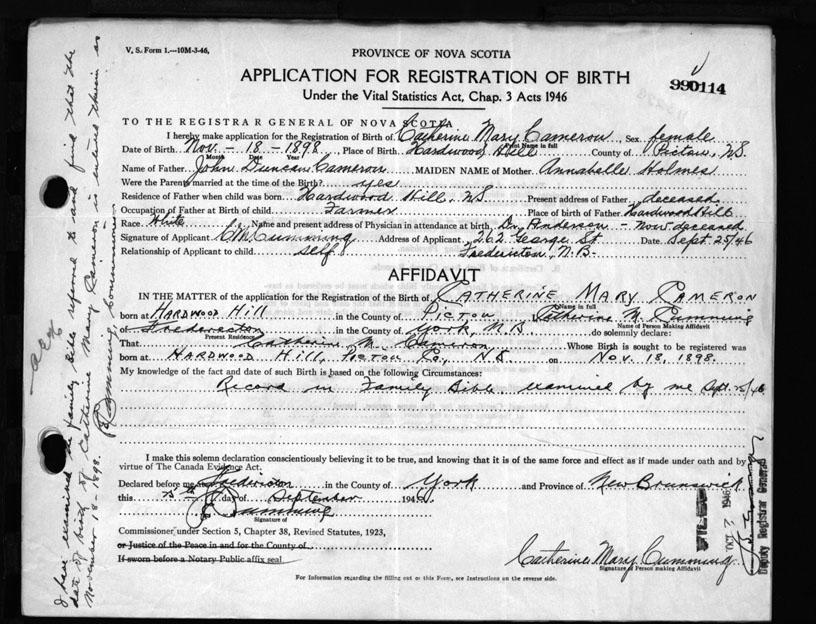 V. S. Form 1.—10M-3-46.
PROVINCE OF NOVA SCOTIA
APPLICATION FOR REGISTRATION OF BIRTH
990114
Under the Vital Statistics Act, Chap. 3 Acts 1946
TO THE REGISTRAR GENERAL OF NOVA SCOTIA
I hereby make application for the Registration of Birth of Catherine Mary Cameron, Sex female
Print Name in full
Date of Birth Nov - 18 - 1898 Place of Birth Hardwood Hill County of Pictou, N.S.
Month Date Year
Name of Father John Duncan Cameron MAIDEN NAME of Mother Annabelle Holmes
Were the Parents married at the time of Birth? yes
Residence of Father when child was born Hardwood Hill, NS Present address of Father deceased
Occupation of Father at Birth of child Farmer Place of Birth of Father Hardwood Hill
Race White Name and present address of Physician in attendance at birth Dr. Anderson - now deceased
Signature of Applicant C M Cumming Address of Applicant 262 George St Date Sept 25/46
Relationship of Applicant to child self Fredericton, N.B-
AFFIDAVIT
IN THE MATTER of the application for the Registration of the Birth of CATHERINE MARY CAMERON
Name in full
born at HARDWOOD Hill in the County of PICTOU I, Catherine M. Cumming
Name of Person Making Affidavit
of Fredericton in the County of York, N.B do solemnly declare:
Present Residence
That Catherine M. Cameron Whose Birth is sought to be registered was
born at HARDWOOD Hill, PICTOU Co, N.S on Nov. 18, 1898.
My knowledge of the fact and date of such Birth is based on the following Circumstances:
Record in Family Bible examined by me Sept. 25/46
I make this solemn declaration conscientiously believing it to be true, and knowing that it is of the same force and effect as if made under oath and by
virtue of The Canada Evidence Act.
Declared before me at Fredericton in the County of York and Province of New Brunswick
this 25th day of September 1946
Cumming
Signature of
Commissioner under Section 5, Chapter 38, Revised Statutes, 1923,
or Justice of the Peace in and for the County of
If sworn before a Notary Public affix seal
Catherine Mary Cumming
Signature of Person making Affidavit
For Information regarding the filling out of this Form, see Instructions on the reverse side.
FILED
OCT 2 1946
Deputy Registrar General
I have examined the family Bible referred to and find that the
date of birth of Catherine Mary Cameron is entered therein as
November 18-1898.
Cumming Commissioner